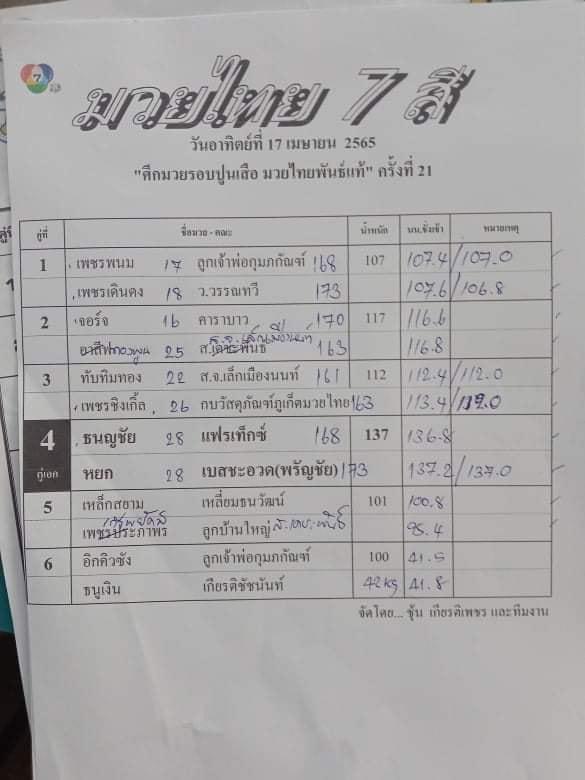 7
มวยไทย 7 สี
วันอาทิตย์ที่ 17 เมษายน 2565
"ศึกมวยรอบปูนเสือ มวยไทยพันธ์แท้" ครั้งที่ 21
คู่ที่ ชื่อมวย - คณะ น้ำหนัก นน.ชั่งเช้า หมายเหตุ
1 เพชรพนม 17 ลูกเจ้าพ่อกุมภกัณฑ์ 168 107 107.4 /107.0
เพชรเดินดง 18 ว.วรรณทวี 173 107.6 /106.8
2 จอร์จ 16 คาราบาว 170 117 116.6
25 ส.เดชะพันธ์ 163 116.8
3 ทับทิมทอง 22 ส.จ.เล็กเมืองนนท์ 161 112 112.4 /112.0
เพชรซิงเกิ้ล 26 กบวัสดุภัณฑ์ภูเก็ตมวยไทย 163 113.4 /112.0
4 ธนญชัย 28 แฟรเท็กซ์ 168 137 136.8
คู่เอก หยก 28 เบสชะอวด(พรัญชัย) 173 137.2 /137.0
5 เหล็กสยาม เหลี่ยมธนวัฒน์ 101 100.8
เพชรประภาพร ลูกบ้านใหญ่ 95.4
6 อิกคิวซัง ลูกเจ้าพ่อกุมภกัณฑ์ 100 41.5
ธนูเงิน เกียรติชัชนันท์ 42kg 41.8
จัดโดย... ชุ้น เกียรติเพชร และทีมงาน